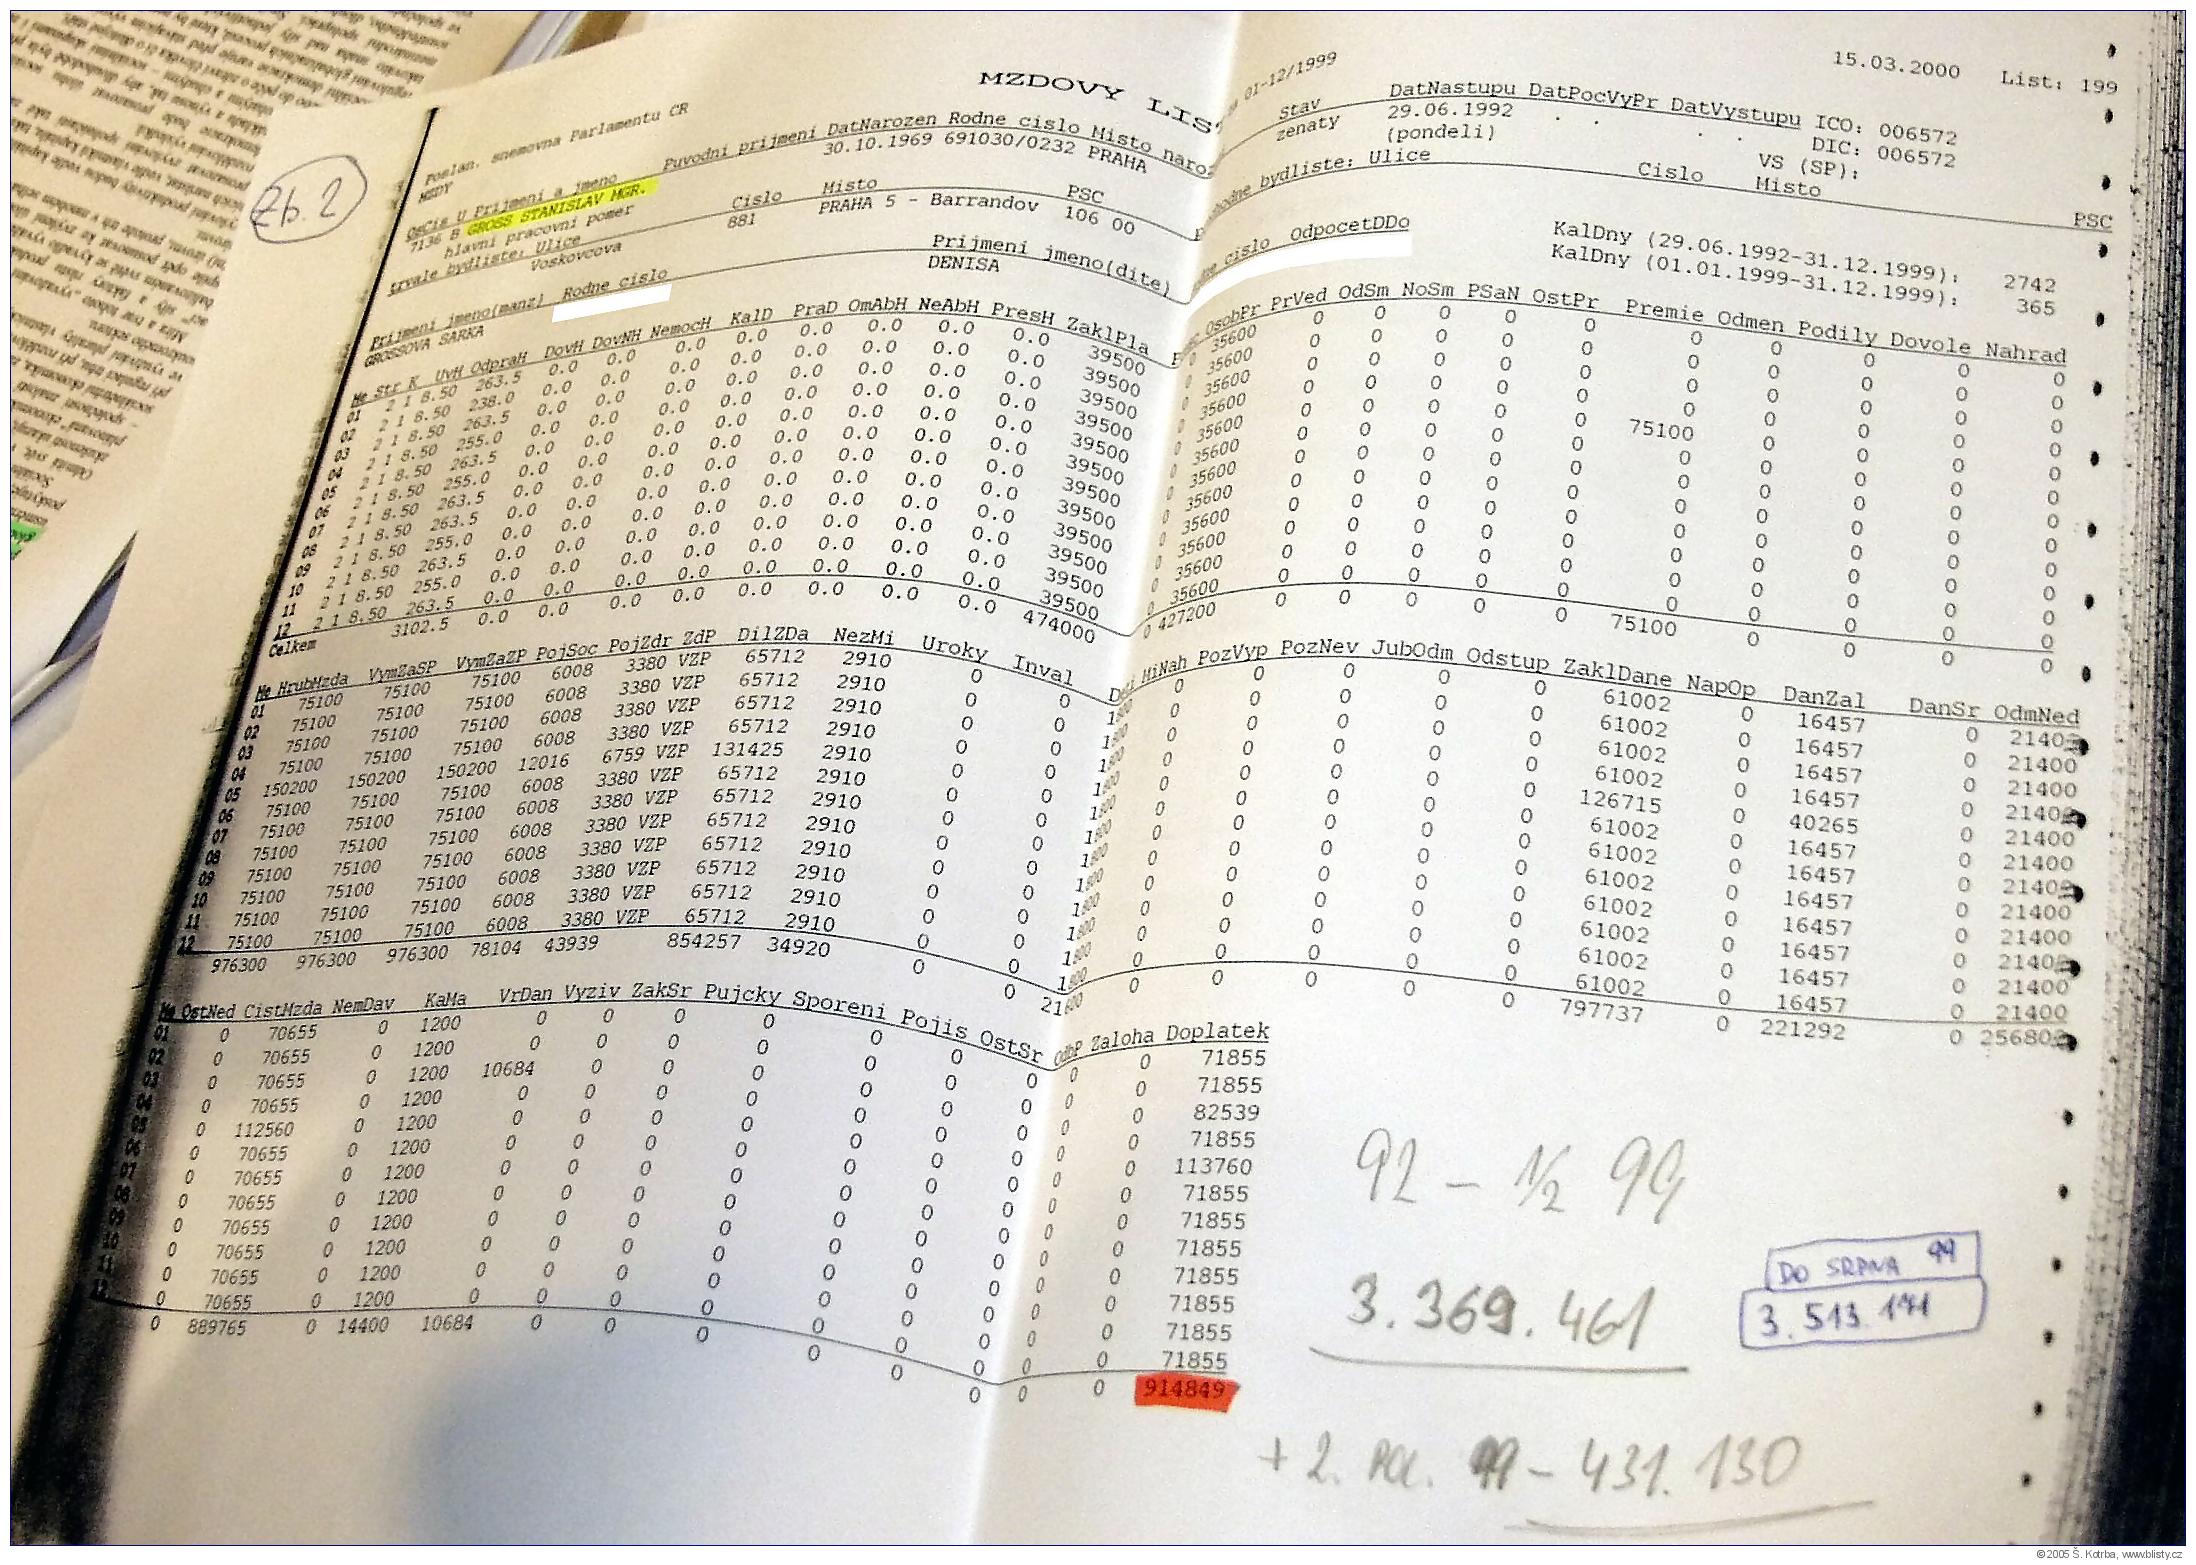 15.03.2000 List: 199
MZDOVY LIS 01-12/1999
Zb. 2
Poslan. snemovna Parlamentu CR
MZDY
OsCis U Prijmeni a jmeno Puvodni prijmeni DatNarozen Rodne cislo Misto naro Stav DatNastupu DatPocVyPr DatVystupu ICO: 006572
7136 B GROSS STANISLAV MGR. 30.10.1969 691030/0232 PRAHA zenaty 29.06.1992 . . . . DIC: 006572
hlavni pracovni pomer (pondeli) VS (SP):
trvale bydliste: Ulice Cislo Misto PSC hodne bydliste: Ulice Cislo Misto PSC
Voskovcova 881 PRAHA 5 - Barrandov 106 00
Prijmeni jmeno(manz) Rodne cislo Prijmeni jmeno(dite) dne cislo OdpocetDDo KalDny (29.06.1992-31.12.1999): 2742
GROSSOVA SARKA DENISA KalDny (01.01.1999-31.12.1999): 365
Me Str K UvH OdpraH DovH DovNH NemocH KalD PraD OmAbH NeAbH PresH ZaklPla OsobPr PrVed OdSm NoSm PSaN OstPr Premie Odmen Podily Dovole Nahrad
01 2 1 8.50 263.5 0.0 0.0 0.0 0.0 0.0 0.0 0.0 0.0 39500 0 35600 0 0 0 0 0 0 0 0 0 0
02 2 1 8.50 238.0 0.0 0.0 0.0 0.0 0.0 0.0 0.0 0.0 39500 0 35600 0 0 0 0 0 0 0 0 0 0
03 2 1 8.50 263.5 0.0 0.0 0.0 0.0 0.0 0.0 0.0 0.0 39500 0 35600 0 0 0 0 0 0 0 0 0 0
04 2 1 8.50 255.0 0.0 0.0 0.0 0.0 0.0 0.0 0.0 0.0 39500 0 35600 0 0 0 0 0 0 0 0 0 0
05 2 1 8.50 263.5 0.0 0.0 0.0 0.0 0.0 0.0 0.0 0.0 39500 0 35600 0 0 0 0 0 75100 0 0 0 0
06 2 1 8.50 255.0 0.0 0.0 0.0 0.0 0.0 0.0 0.0 0.0 39500 0 35600 0 0 0 0 0 0 0 0 0 0
07 2 1 8.50 263.5 0.0 0.0 0.0 0.0 0.0 0.0 0.0 0.0 39500 0 35600 0 0 0 0 0 0 0 0 0 0
08 2 1 8.50 263.5 0.0 0.0 0.0 0.0 0.0 0.0 0.0 0.0 39500 0 35600 0 0 0 0 0 0 0 0 0 0
09 2 1 8.50 255.0 0.0 0.0 0.0 0.0 0.0 0.0 0.0 0.0 39500 0 35600 0 0 0 0 0 0 0 0 0 0
10 2 1 8.50 263.5 0.0 0.0 0.0 0.0 0.0 0.0 0.0 0.0 39500 0 35600 0 0 0 0 0 0 0 0 0 0
11 2 1 8.50 255.0 0.0 0.0 0.0 0.0 0.0 0.0 0.0 0.0 39500 0 35600 0 0 0 0 0 0 0 0 0 0
12 2 1 8.50 263.5 0.0 0.0 0.0 0.0 0.0 0.0 0.0 0.0 39500 0 35600 0 0 0 0 0 0 0 0 0 0
Celkem 3102.5 0.0 0.0 0.0 0.0 0.0 0.0 0.0 0.0 474000 0 427200 0 0 0 0 0 75100 0 0 0 0
Me HrubMzda VymZaSP VymZaZP PojSoc PojZdr ZdP DilZDa NezMi Uroky Inval MiNah PozVyp PozNev JubOdm Odstup ZaklDane NapOp DanZal DanSr OdmNed
01 75100 75100 75100 6008 3380 VZP 65712 2910 0 0 1800 0 0 0 0 0 61002 0 16457 0 21400
02 75100 75100 75100 6008 3380 VZP 65712 2910 0 0 1800 0 0 0 0 0 61002 0 16457 0 21400
03 75100 75100 75100 6008 3380 VZP 65712 2910 0 0 1800 0 0 0 0 0 61002 0 16457 0 21400
04 75100 75100 75100 6008 3380 VZP 65712 2910 0 0 1800 0 0 0 0 0 61002 0 16457 0 21400
05 150200 150200 150200 12016 6759 VZP 131425 2910 0 0 1800 0 0 0 0 0 126715 0 40265 0 21400
06 75100 75100 75100 6008 3380 VZP 65712 2910 0 0 1800 0 0 0 0 0 61002 0 16457 0 21400
07 75100 75100 75100 6008 3380 VZP 65712 2910 0 0 1800 0 0 0 0 0 61002 0 16457 0 21400
08 75100 75100 75100 6008 3380 VZP 65712 2910 0 0 1800 0 0 0 0 0 61002 0 16457 0 21400
09 75100 75100 75100 6008 3380 VZP 65712 2910 0 0 1800 0 0 0 0 0 61002 0 16457 0 21400
10 75100 75100 75100 6008 3380 VZP 65712 2910 0 0 1800 0 0 0 0 0 61002 0 16457 0 21400
11 75100 75100 75100 6008 3380 VZP 65712 2910 0 0 1800 0 0 0 0 0 61002 0 16457 0 21400
12 75100 75100 75100 6008 3380 VZP 65712 2910 0 0 1800 0 0 0 0 0 61002 0 16457 0 21400
976300 976300 976300 78104 43939 854257 34920 0 0 21600 0 0 0 0 0 797737 0 221292 0 256800
Me OstNed CistMzda NemDav KaMa VrDan Vyziv ZakSr Pujcky Sporeni Pojis OstSr OdbP Zaloha Doplatek
01 0 70655 0 1200 0 0 0 0 0 0 0 0 0 71855
02 0 70655 0 1200 0 0 0 0 0 0 0 0 0 71855
03 0 70655 0 1200 10684 0 0 0 0 0 0 0 0 82539
04 0 70655 0 1200 0 0 0 0 0 0 0 0 0 71855
05 0 112560 0 1200 0 0 0 0 0 0 0 0 0 113760
06 0 70655 0 1200 0 0 0 0 0 0 0 0 0 71855
07 0 70655 0 1200 0 0 0 0 0 0 0 0 0 71855
08 0 70655 0 1200 0 0 0 0 0 0 0 0 0 71855
09 0 70655 0 1200 0 0 0 0 0 0 0 0 0 71855
10 0 70655 0 1200 0 0 0 0 0 0 0 0 0 71855
11 0 70655 0 1200 0 0 0 0 0 0 0 0 0 71855
12 0 70655 0 1200 0 0 0 0 0 0 0 0 0 71855
0 889765 0 14400 10684 0 0 0 0 0 0 0 0 914849
92 - 1/2 99
3.369.461
DO SRPNA 99
3.513.171
+ 2. POL. 99 - 431.130
©2005 Š. Kotrba, www.blisty.cz